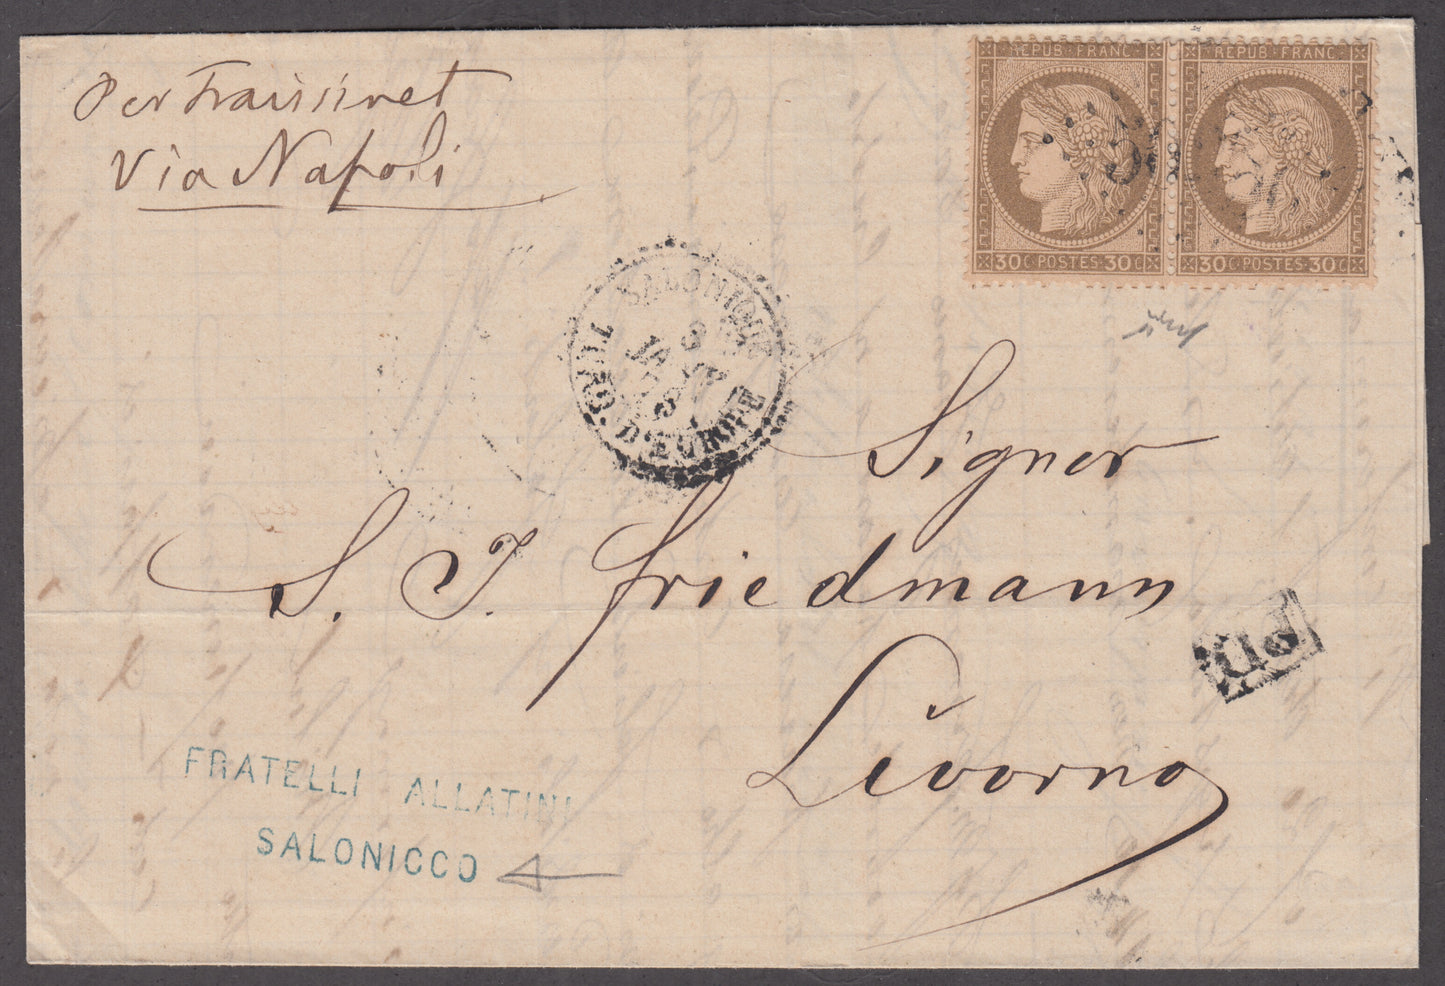 Per Fraissinet
Via Napoli
REPUB·FRANC
REPUB·FRANC
30 C·POSTES·30 C
30 C·POSTES·30 C
SALONIQUE
TURQ. D'EUROPE
Signor
S. J. Friedmann
PD
Livorno
FRATELLI ALLATINI
SALONICCO